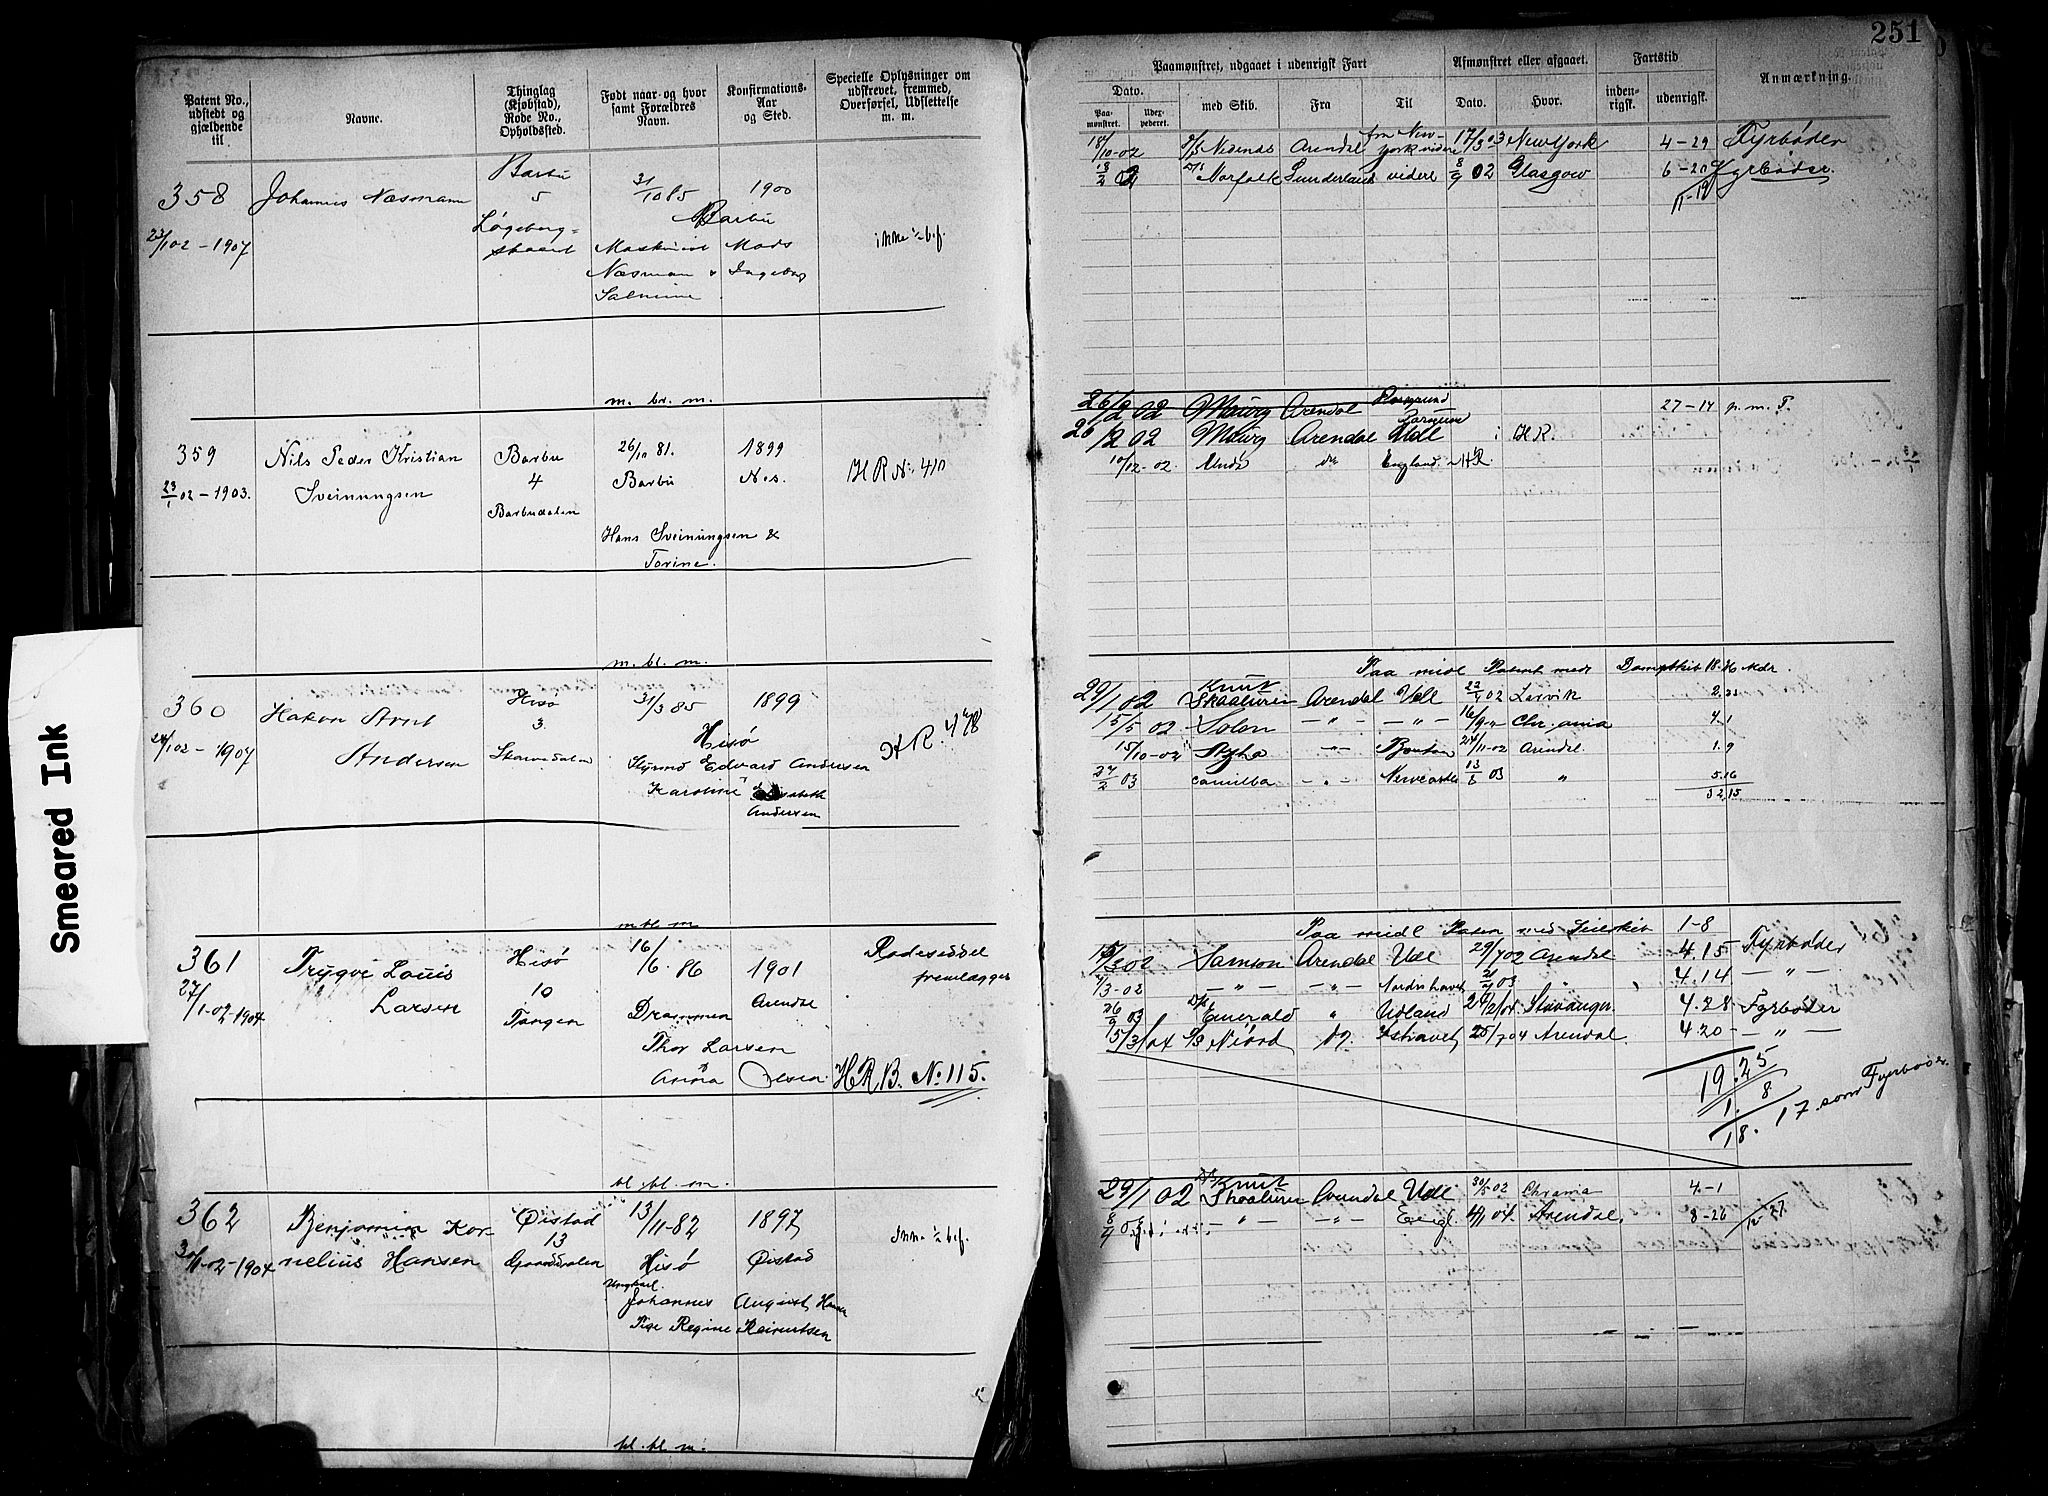 251
Patent No., udstedt og gjældende til
Navne.
Thinglag (Kjøbstad), Rode No., Opholdsted.
Født naar og hvor samt Forældres Navn.
Konfirmations-Aar og Sted.
Specielle Oplysninger om udskrevet, fremmed, Overførsel, Udslettelse m. m.
Paamønstret, udgaaet i udenrigsk Fart
Afmønstret eller afgaaet.
Fartstid
Anmærkning.
Dato.
Paa-mønstret.
Udex-pederet.
med Skib.
Fra
Til
Dato.
Hvor.
inden-rigsk.
udenrigsk.
Smeared Ink
358
23/1 02 - 1907
Johannes Næsmann
Barbu
5
31/10 85
1900
Barbu
Maskinist Mads
Næsman & Ingeborg
Salmine
18/10-02 Nedenæs Arendal fra New-york videre 17/3 03 New York 4-29 Fyrbøder
02 D/S Norfolk Sunderland videre 8/9 02 Glasgow 6-20 Fyrbøder.
11-19
m. br. m.
359
23/1 02 - 1903.
Nils Peder Kristian
Sveinungsen
Barbu
4
Barbudalen
26/10 81.
Barbu
1899
Nes.
H R No. 410
Hans Sveinungsen &
Torine.
26/2 02 Arendal 27-14 p. m. F.
26/2 02 Arendal Udl i H R.
10/12-02. do England. H R.
m. bl. m.
360
1/02 - 1907
Hakon Arnt
Andersen
Hisø
3
31/3 85
1899
Hisø
H R. 478
Styrmd Edvard Andersen
Karoline Elisabeth
Andersen
Paa midl Patent med Dampskib 18.
29/1 02 Knut Skaaluren Arendal Udl 22/4 02 Larvik
15/5 02 Solon - " - - " - 16/9 - " Chr.ania 4.1
15/10-02 - " - 24/11-02 Arendal. 1.9
27/2 03 - " - Newcastle 13/8 03 " 5.16
32.15
m. bl. m
361
27/1-02-1904
Trygve Louis
Larsen
Hisø
10
Tangen
16/6. 86
Drammen
1901
Arendal
Rodeseddel
fremlægges
Thor Larsen
Anna Olsen
H R. B. No. 115.
Paa midl Paten med Seilskib 1-8
02 Samson Arendal Udl 29/7 02 Arendal 4.15 Fyrbøder
/3-02 - " - - " - Nordishavet 03 " 4.14 - " -
26/9 03 D/S Emerald " Udland Stavanger 4.28 Fyrbøder
15/3 04 S/S Niord do. Ishavet 25/7 04 Arendal 4.20 - " -
19.25
1. 8
18. 17 som Fyrbøder.
bl. bl. m.
362
30/1-02-1904
Benjamin Kor-
nelius Hansen
Øistad
13
13/11-82
Hisø
1897
Øistad
Ungkarl.
Johannes August Hansen
Pige Regine Reinertsen
29/1 02 D/S Knut Skaaluren Arendal Udl 30/5 02 Chrania 4.-1
- " - - " - Engl. 4/1 04 Arendal 8-26 12-27
bl. bl. m.